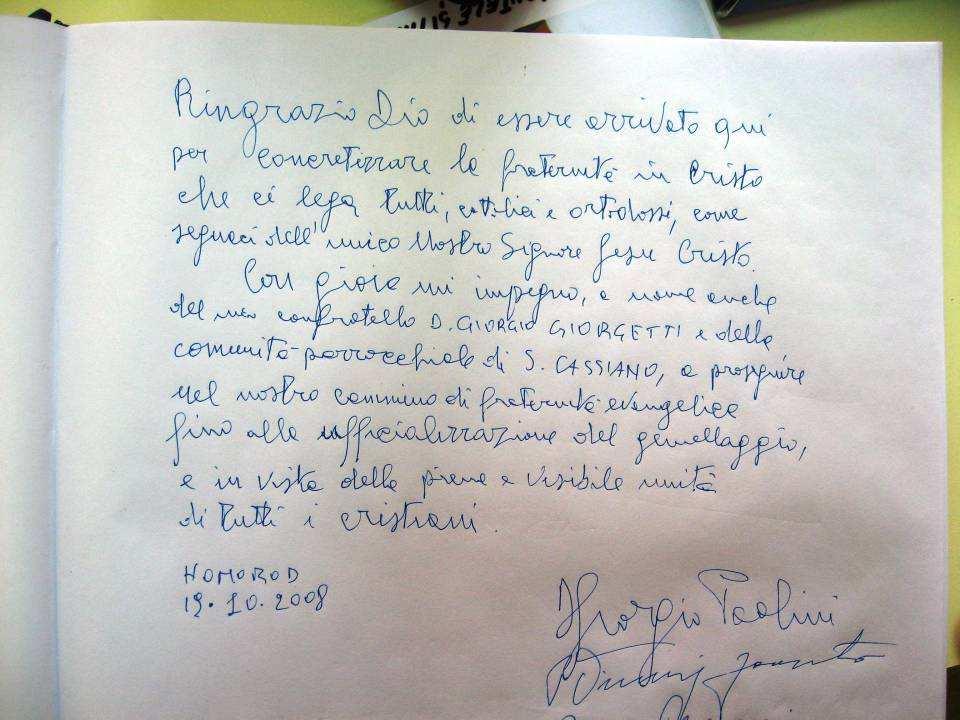 Ringrazio Dio di essere arrivato qui
per concretizzare la fraternità in Cristo
che ci lega tutti, cattolici e ortodossi, come
seguaci dell'unico Nostro Signore Gesu Cristo.
Con gioia mi impegno, a nome anche
del mio confratello D. GIORGIO GIORGETTI e della
comunità parrocchiale di S. CASSIANO, a proseguire
nel nostro cammino di fraternità evangelica
fino alla ufficializzazione del gemellaggio,
e in vista della piena e visibile unità
di tutti i cristiani.
HOMOROD
19.10.2008
Giorgio Paolini